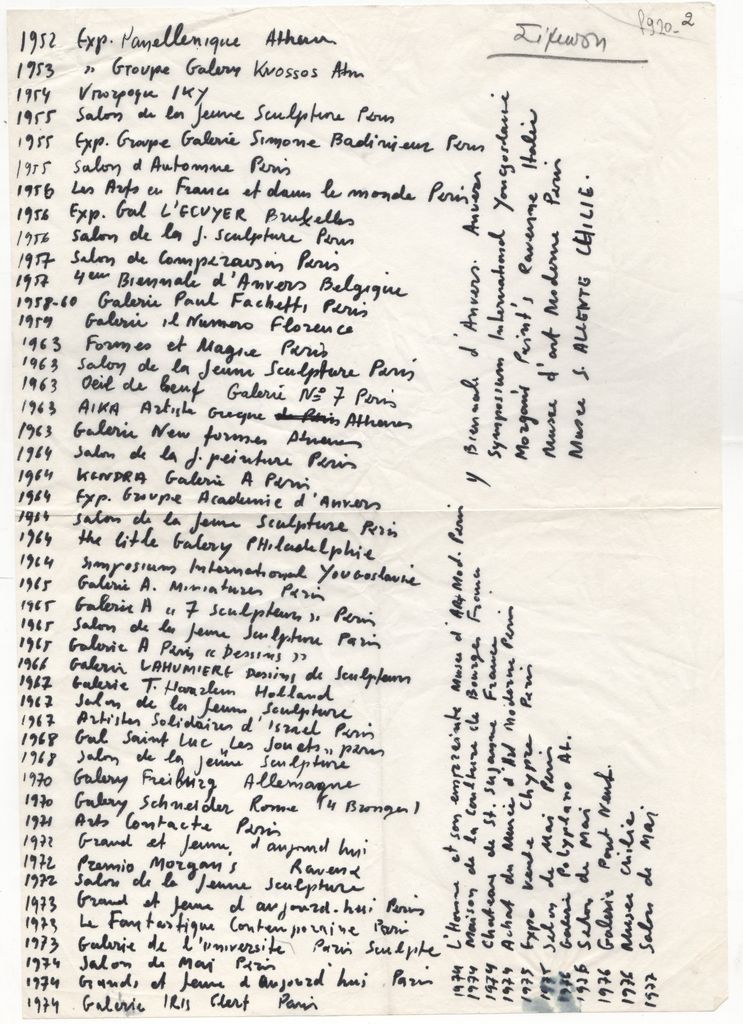 1952 Exp. Panellenique Athenes
1953 " Groupe Galery Knossos Ath
1954 Υποτροφια ΙΚΥ
1955 Salon de la Jeune Sculpture Paris
1955 Exp. Groupe Galerie Simone Badinier Paris
1955 Salon d'Automne Paris
1956 Les Arts en France et dans le monde Paris
1956 Exp. Gal L'ECUYER Bruxelles
1956 Salon de la J. Sculpture Paris
1957 Salon de Comparaison Paris
1957 4eme Biennale d'Anvers Belgique
1958-60 Galerie Paul Fachetti Paris
1959 Galerie il Numero Florence
1963 Formes et Magie Paris
1963 Salon de la Jeune Sculpture Paris
1963 Oeil de beuf Galerie No 7 Paris
1963 AIKA Artiste Grecque Athenes
1963 Galerie New formes Athenes
1964 Salon de la J. peinture Paris
1964 KENDRA Galerie A Paris
1964 Exp. Groupe Academie d'Anvers
1964 Salon de la Jeune Sculpture Paris
1964 the little Galery PHiladelphie
1964 Simposium International Yougoslavie
1965 Galerie A. Miniatures Paris
1965 Galerie A "7 Sculpteurs" Paris
1965 Salon de la Jeune Sculpture Paris
1965 Galerie A Paris "Dessins"
1966 Galerie LAHUMIERE Dessins de Sculpteurs
1967 Galerie T. Haarlem Holland
1967 Salon de la Jeune Sculpture
1967 Artistes Solidaires d'Israel Paris
1968 Gal Saint Luc "Les Jouets" Paris
1968 Salon de la Jeune Sculpture
1970 Galery Freiburg Allemagne
1970 Galery Schneider Rome (4 Bronzes)
1971 Arts Contacte Paris
1972 Grand et Jeune, d'aujourd hui
1972 Premio Morgan's Ravena
1972 Salon de la Jeune Sculpture
1973 Grand et Jeune d'aujourd-hui Paris
1973 Le Fantastique Contemporaine Paris
1973 Galerie de l'université Paris Sculpte
1974 Salon de Mai Paris
1974 Grands et Jeune d'Aujourd hui Paris
1974 Galerie IRIS Clert Paris
1974 L'Homme et son empreinte Musee d'Art Mod. Paris
1974 Maison de la Coulture de Bourges France
1974 Chateau de St. Suzanne France
1974 Achat du Musée d'Art Moderne Paris
1975 Expo Vente Chypre Paris
1975 Salon de Mai Paris
1976 Galerie Polyplano At.
1976 Salon de Mai
1976 Galerie Pont Neuf.
1976 Musee Chilie
1977 Salon de Mai
y Biennale d'Anvers. Anvers
Symposium International Yougoslavie
Morgan's Peint's Ravenne Italie
Musee d'art Moderne Paris
Musee S. ALLENTE CHILIE.
Σίμωση
1920-2